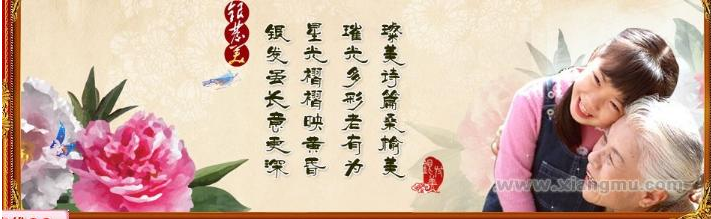 璨美诗篇桑榆美
璀光多形老有为
星光褶褶映黄昏
银发虽长意更深
银慧美
www.xiangmu.com